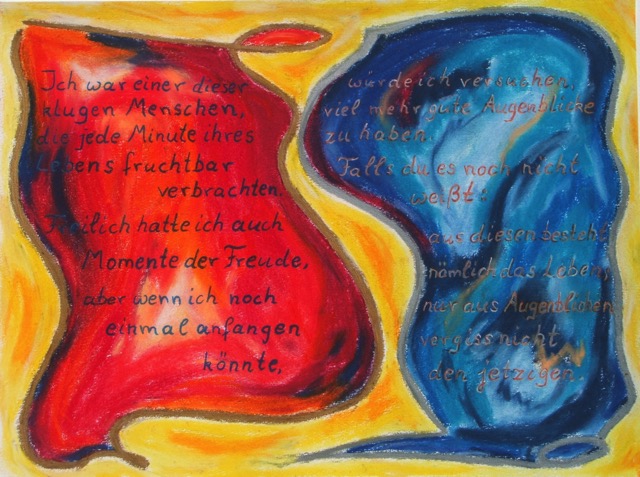 Ich war einer dieser
klugen Menschen,
die jede Minute ihres
Lebens fruchtbar
verbrachten.
Freilich hatte ich auch
Momente der Freude,
aber wenn ich noch
einmal anfangen
könnte,
würde ich versuchen,
viel mehr gute Augenblicke
zu haben.
Falls du es noch nicht
weißt:
aus diesen besteht
nämlich das Leben,
nur aus Augenblicken
vergiss nicht
den jetzigen.